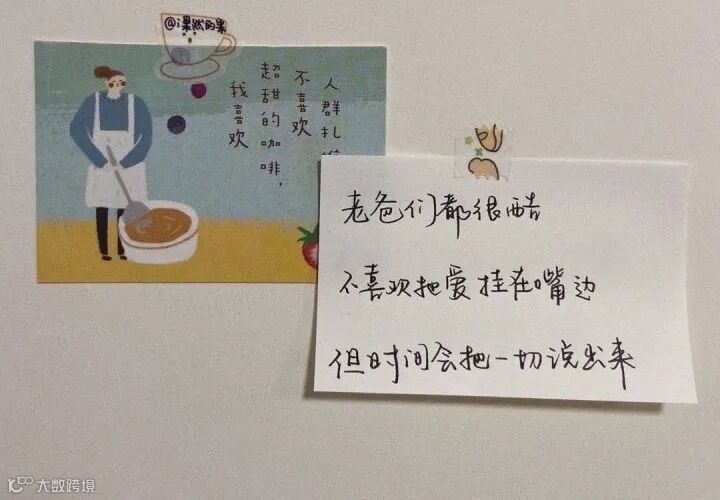 @i果然的果
我喜欢
超甜的咖啡,
不喜欢
人群扎
老爸们都很酷
不喜欢把爱挂在嘴边
但时间会把一切说出来
大数跨境